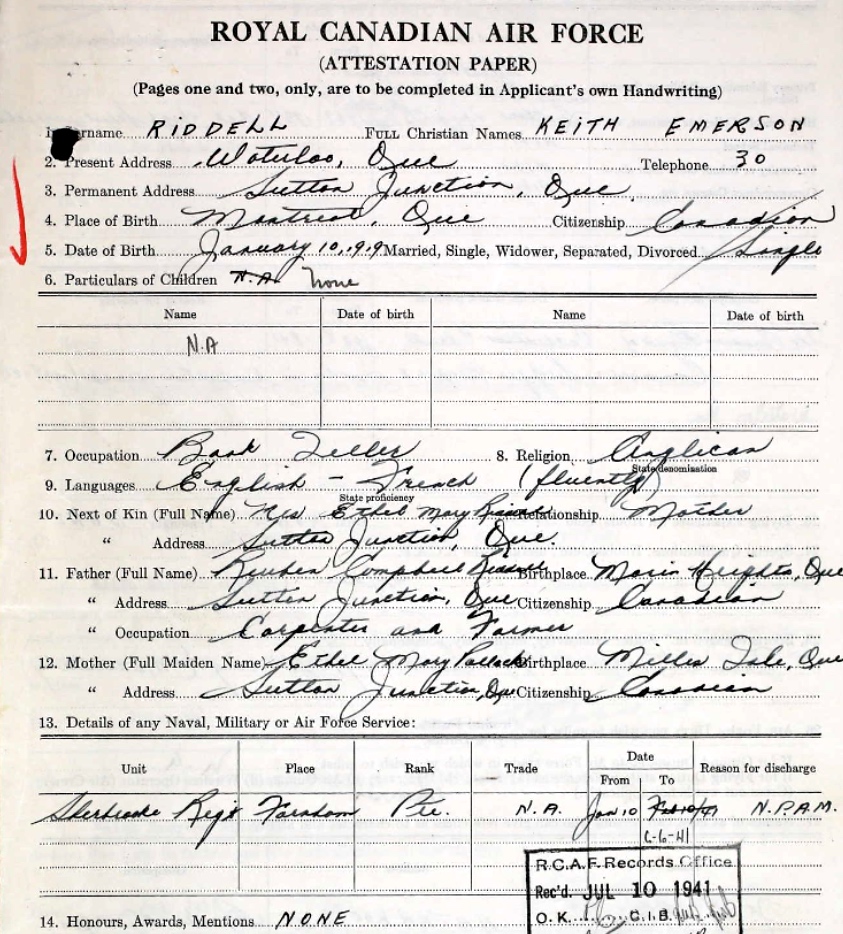 ROYAL CANADIAN AIR FORCE
(ATTESTATION PAPER)
(Pages one and two, only, are to be completed in Applicant's own Handwriting)
1. Surname RIDDELL FULL Christian Names KEITH EMERSON
2. Present Address Waterloo, Que Telephone 30
3. Permanent Address Sutton Junction, Que.
4. Place of Birth Montreal, Que Citizenship Canadian
5. Date of Birth January 10, 1919 Married, Single, Widower, Separated, Divorced Single
6. Particulars of Children N.A. None
Name Date of birth Name Date of birth
N.A
7. Occupation Bank Teller 8. Religion Anglican
State denomination
9. Languages English - French (fluently)
State proficiency
10. Next of Kin (Full Name) Mrs Ethel Mary Riddell Relationship Mother
" Address Sutton Junction, Que.
11. Father (Full Name) Reuben Campbell Riddell Birthplace Morin Heights, Que
" Address Sutton Junction, Que Citizenship Canadian
" Occupation Carpenter and Farmer
12. Mother (Full Maiden Name) Ethel Mary Pollock Birthplace Milles Isle, Que
" Address Sutton Junction, Que Citizenship Canadian
13. Details of any Naval, Military or Air Force Service:
Unit Place Rank Trade Date Reason for discharge
From To
Sherbrooke Regt Farnham Pte. N.A. Jan 10 Feb 10/41 N.P.A.M.
6-6-41
R.C.A.F. Records Office
Rec'd. JUL 10 1941
O.K. C.I.B.
14. Honours, Awards, Mentions NONE